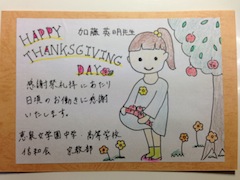 HAPPY
THANKSGIVING
DAY
加藤英明先生
感謝祭礼拝にあたり
日頃のお働きに感謝
いたします。
恵泉女学園中学・高等学校
信和会 宗教部